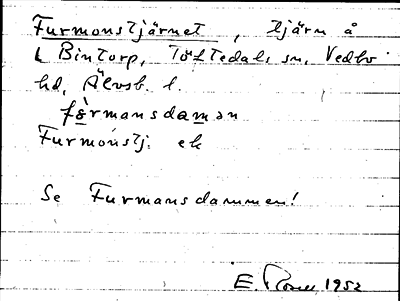 Furmonstjärnet, tjärn å
L Bintorp, Töftedals sn, Vedbo
hd, Älvsb. l.
fòrmansdaman
Furmonstj. ek
Se Furmansdammen!
E. 1952